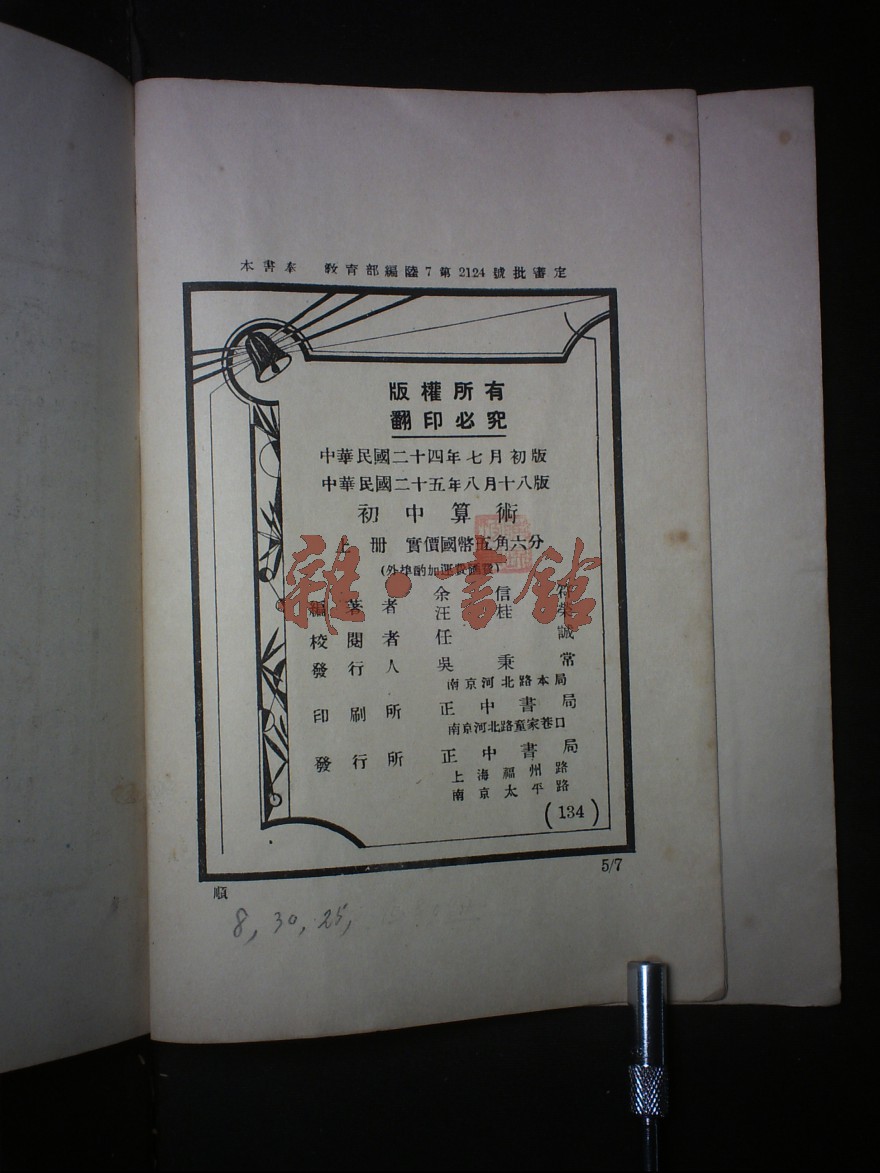 本書奉 教育部編陸7第2124號批審定
版權所有
翻印必究
中華民國二十四年七月初版
中華民國二十五年八月十八版
初中算術
上册 實價國幣五角六分
(外埠酌加運費匯費)
編著者 余信符
汪桂榮
校閱者 任誠
發行人 吳秉常
南京河北路本局
印刷所 正中書局
南京河北路童家巷口
發行所 正中書局
上海福州路
南京太平路
(134)
5/7
順
8, 30, 25,
雜·書館